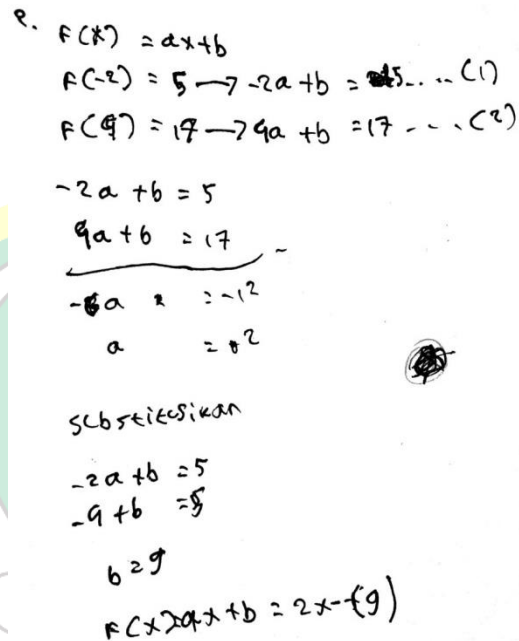 e.
F(x) = ax+b
F(-2) = 5 → -2a + b = 5 .... (1)
F(4) = 17 → 4a + b = 17 .... (2)
-2a + b = 5
4a + b = 17
-6a = -12
a = 2
substitusikan
-2a + b = 5
-4 + b = 5
b = 9
F(x) = ax + b = 2x-(9)